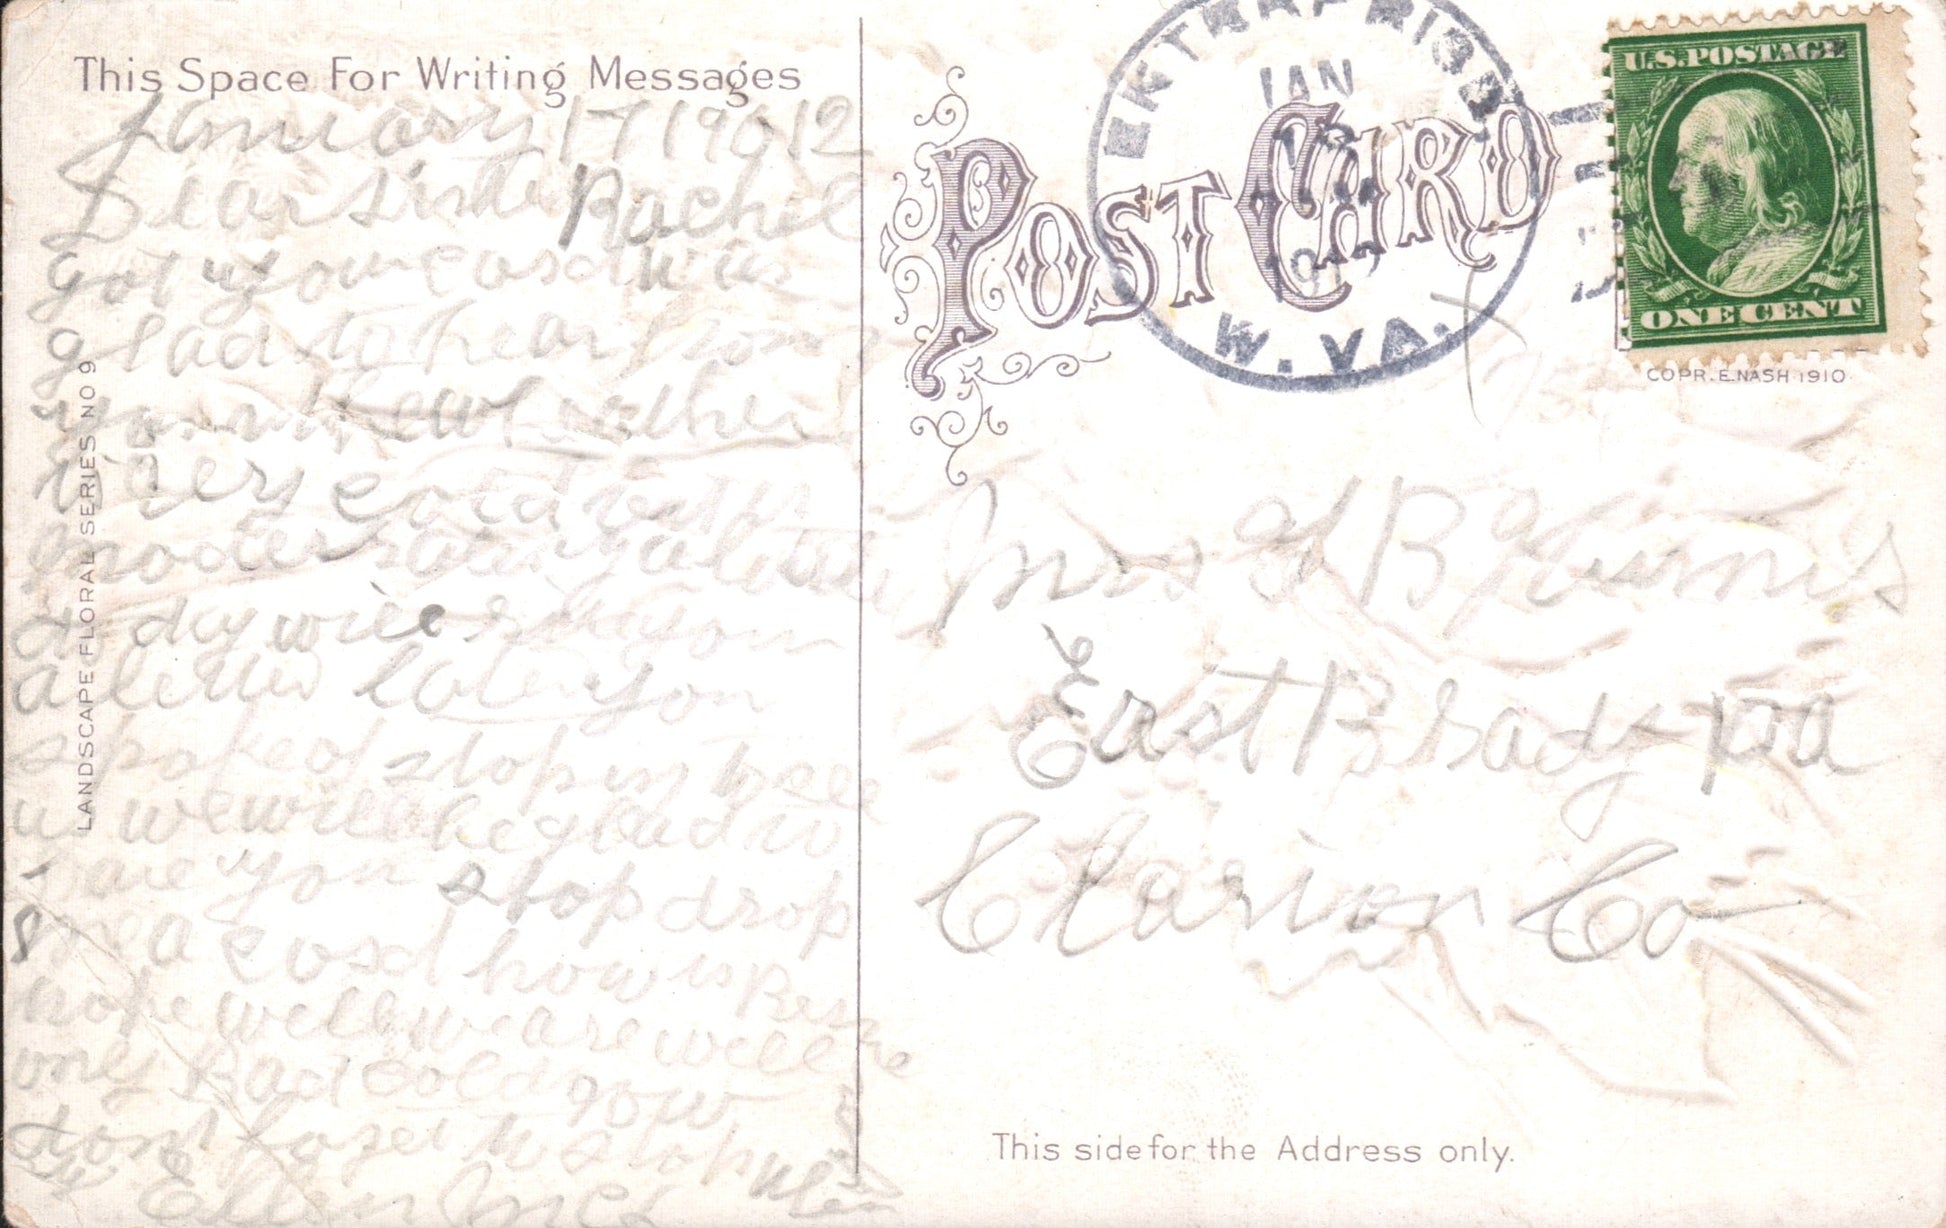 This Space For Writing Messages
January 17 19012
Dear Sister Rachel
got your card was
glad to hear from
you
is very cold
moderating a little
to day will you
a letter later you
spoke of stoping
us we will be glad to
have you stop drop
me a card how is Bes
hope well we are well
only Bad cold now
dont forget to stop
Ellen
LANDSCAPE FLORAL SERIES NO 9
POST CARD
ENTERPRISE
JAN
18
1912
W. VA.
U.S. POSTAGE
ONE CENT
COPR. E. NASH 1910
Mrs
East Brady pa
Clarion Co
This side for the Address only.